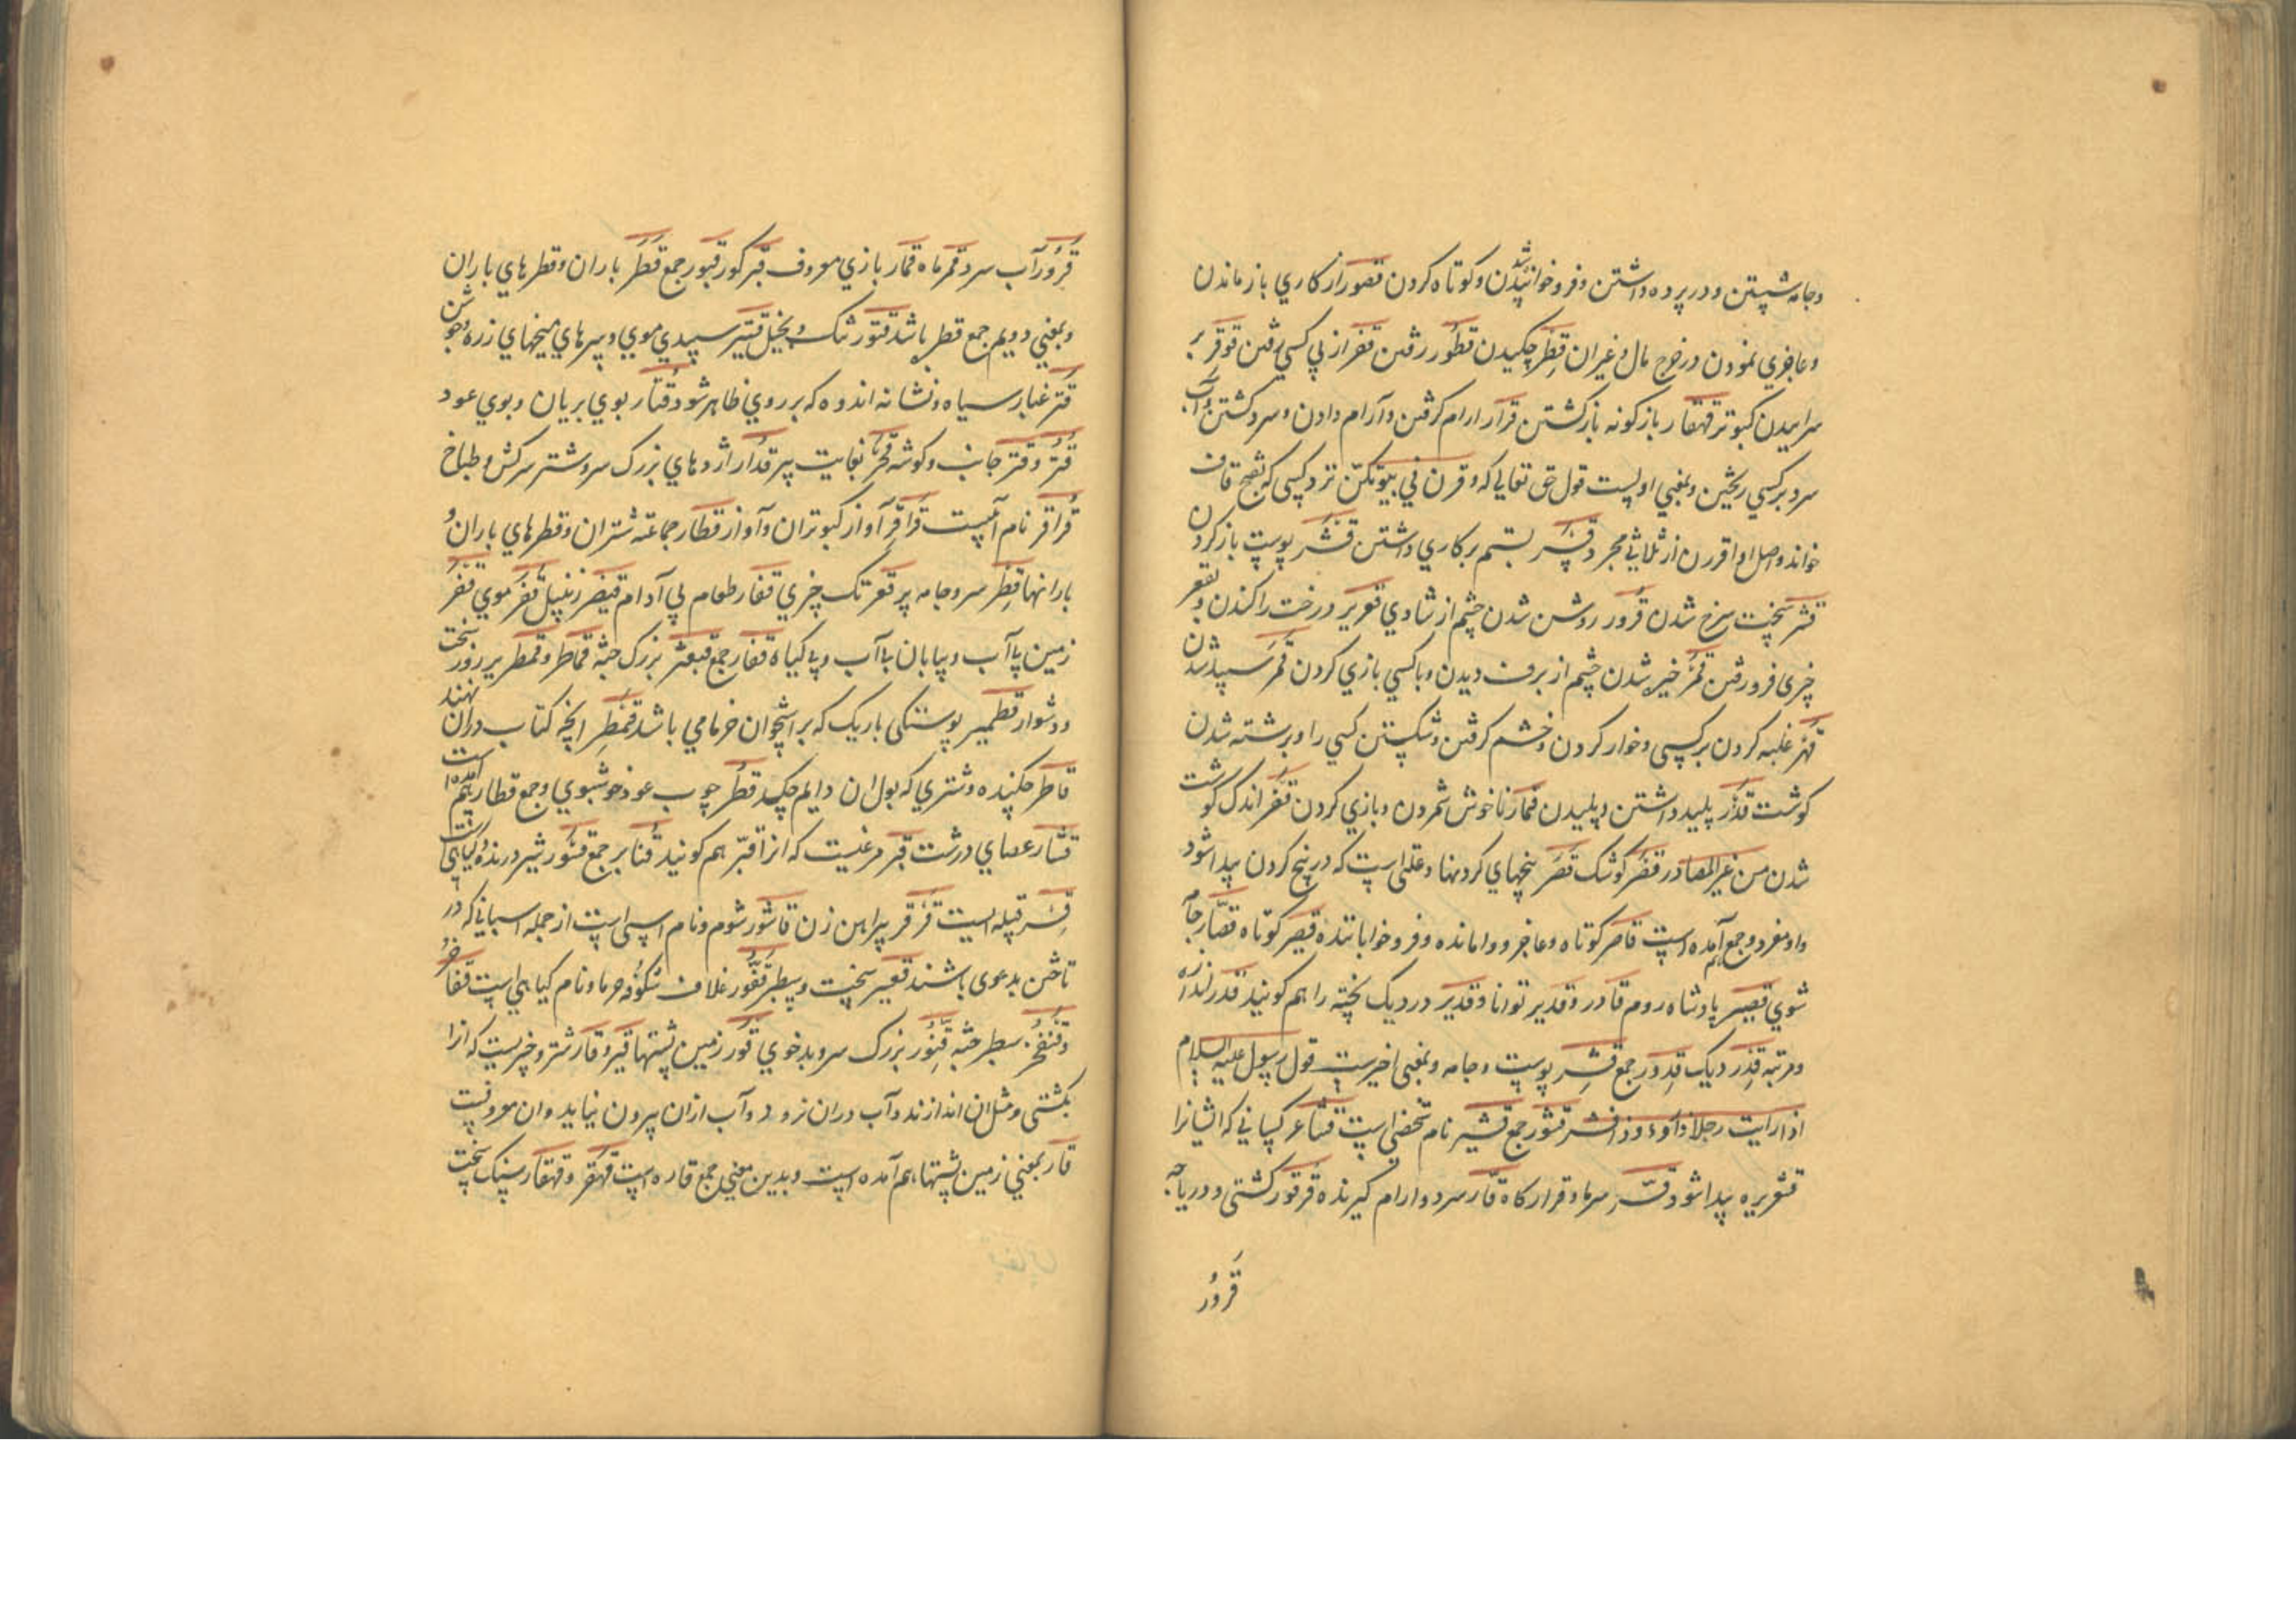 وجامه شستن ودر پرده داشتن وفرو خوابانیدن وکوتاه کردن قصور از کاری باز ماندن
وعاجزی نمودن در خرج مال وغیر ان قطر چکیدن قطور رفتن قفر از پی کسی رفتن قرقر بر
سراییدن کبوتر قهقار باز کونه باز کشتن قرار ارام کرفتن وآرام دادن وسرد کشتن وآب
سرد بر کسی ریختن وبمعنی اولست قول حق تعالی که وقرن فی بیوتکن نزد کسی که بفتح قاف
خواند واصل او اقررن از ثلاثی مجرد قسر بستم بر کاری داشتن قشر پوست باز کردن
قشر سخت سرخ شدن قرور روشن شدن چشم از شادی تقعیر درخت را کندن وبقعر
چیزی فرو رفتن قمر خیره شدن چشم از برف دیدن وباکسی بازی کردن قمر سپید شدن
قهر غلبه کردن بر کسی وخوار کردن وخشم کرفتن وشکستن کسی را وبرشته شدن
کوشت قذر پلید داشتن وپلیدن قمار ناخوش شمردن وبازی کردن قفر اندک کوشت
شدن من غیر المصادر قصر کوشک قصر بیخهای کردنها وعلتی است که در بیخ کردن پیدا شود
واو مفرد وجمع آمده است قاصر کوتاه وعاجز ووامانده وفرو خواباننده قصیر کوتاه قصار جامه
شوی قیصر پادشاه روم قادر وقدیر توانا وقدیر در دیک پخته را هم کویند قدر اندازه
ومرتبه قدر دیک قدور جمع قشر پوست وجامه وبمعنی اخیرست قول رسول علیه السلام
اذا رایت رجلا ذا رواء وذا قشر قشور جمع قشیر نام شخصی است قشاعر کسانی که ایشانرا
قشعریره پیدا شود قر سرما وقرار کاه قار سرد وارام کیرنده قرقور کشتی ودریاچه
قرور
قرور آب سرد قمر ماه قمار بازی معروف قبر کور قبور جمع قطر باران وقطرهای باران
وبمعنی دویم جمع قطر باشد قتور تنک وبخیل قتیر سپیدی موی وسرهای میخهای زره وجوشن
قتر غبار سیاه ونشانه اندوه که بر روی ظاهر شود قتار بوی بریان وبوی عود
قتر وقتر جانب وکوشه قحر بغایت پیر قدار اژدهای بزرک سر وشتر سرکش وطباخ
قراقر نام آبیست قراقر آواز کبوتران وآواز قطار جماعه شتران وقطرهای باران و
بارانها قطر سر وجامه پر قعر تک چیزی قفار طعام بی آدام قیصر زنبیل قفر موی قفر
زمین بی آب وبیابان بی آب وبی کیاه قفار جمع قبعثر بزرک جثه قماطر وقمطریر روز سخت
ودشوار قطمیر پوستکی باریک که بر استخوان خرمامی باشد قمطر انچه کتاب دران نهند
قاطر چکنیده وشتری که بول ان دایم چکد قطر چوب عود خوشبوی وجمع قطار هم آمده است
قشار عصای درشت قبر مرغیست که انرا قنبر هم کویند قنابر جمع قسور شیر درنده وکیاهی است
قسر قبیله ایست قرقر پیراهن زن قاشور شوم ونام اسپی است از جمله اسپانی که در
تاختن بدعوی باشند قعیر سخت وسطبر قفور غلاف شکوفه خرما ونام کیاهی است قفاخر
وقنفخر سطبر جثه قنور بزرک سر وبدخوی قور زمین پشتها قیر وقار شتر وچیزیست که انرا
بکشتی ومثل ان اندازند وآب دران نرود وآب ازان بیرون نیاید وان معروفست
قار بمعنی زمین پشتها هم آمده است وبدین معنی جمع قاره است قهقر وقهقار سنک سخت